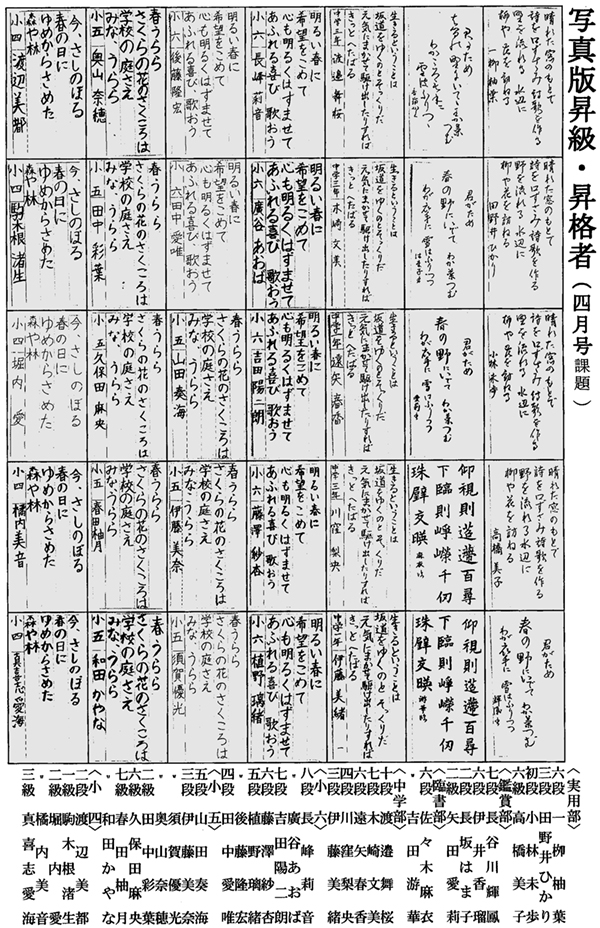 写真版昇級・昇格者(四月号課題)
晴れた窓のもとで
詩を口ずさみ詩歌を作る
野を流れる水辺に
柳や花を訪ねる
一柳柚葉
君がため
春の野にいでてわか菜つむ
わがころも手に
雪はふりつつ
生きるということは
坂道をゆくのとそっくりだ
元気にまかせて駆け出したりすれば
きっとへたばる
中学三年 渡邉舞桜
明るい春に
希望をこめて
心も明るくはずませて
あふれる喜び歌おう
小六 長峰莉音
明るい春に
希望をこめて
心も明るくはずませて
あふれる喜び歌おう
小六 後藤隆宏
春うらら
さくらの花のさくころは
学校の庭さえ
みな、うらら
小五 奥山奈穂
今、さしのぼる
春の日に
ゆめからさめた
森や林
小四 渡辺美都
晴れた窓のもとで
詩を口ずさみ詩歌を作る
野を流れる水辺に
柳や花を訪ねる
田野井ひかり
君がため
春の野にいでてわか菜つむ
わが衣手に雪はふりつつ
生きるということは
坂道をゆくのとそっくりだ
元気にまかせて駆け出したりすれば
きっとへたばる
中学三年 木崎文美
明るい春に
希望をこめて
心も明るくはずませて
あふれる喜び歌おう
小六 廣谷あおば
明るい春に
希望をこめて
心も明るくはずませて
あふれる喜び歌おう
小六 田中愛唯
春うらら
さくらの花のさくころは
学校の庭さえ
みな、うらら
小五 田中彩葉
今、さしのぼる
春の日に
ゆめからさめた
森や林
小四 駒木根渚生
晴れた窓のもとで
詩を口ずさみ詩歌を作る
野を流れる水辺に
柳や花を訪ねる
小林未歩
君がため
春の野にいでてわか菜つむ
わが衣手に雪はふりつつ
生きるということは
坂道をゆくのとそっくりだ
元気にまかせて駆け出したりすれば
きっとへたばる
中学三年 遠矢春香
明るい春に
希望をこめて
心も明るくはずませて
あふれる喜び歌おう
小六 吉田陽二朗
春うらら
さくらの花のさくころは
学校の庭さえ
みな、うらら
小五 山田奏海
春うらら
さくらの花のさくころは
学校の庭さえ
みな、うらら
小五 久保田麻央
今、さしのぼる
春の日に
ゆめからさめた
森や林
小四 堀内愛
晴れた窓のもとで
詩を口ずさみ詩歌を作る
野を流れる水辺に
柳や花を訪ねる
高橋美子
仰視則迢遰百尋
下臨則崢嶸千仞
珠璧交暎
生きるということは
坂道をゆくのとそっくりだ
元気にまかせて駆け出したりすれば
きっとへたばる
中学三年 川窪梨央
明るい春に
希望をこめて
心も明るくはずませて
あふれる喜び歌おう
小六 藤澤紗杏
春うらら
さくらの花のさくころは
学校の庭さえ
みな、うらら
小五 伊藤美奈
春うらら
さくらの花のさくころは
学校の庭さえ
みな、うらら
小五 春田柚月
今、さしのぼる
春の日に
ゆめからさめた
森や林
小四 橘内美音
君がため
春の野にいでてわか菜つむ
わが衣手に雪はふりつつ
仰視則迢遰百尋
下臨則崢嶸千仞
珠璧交暎
生きるということは
坂道をゆくのとそっくりだ
元気にまかせて駆け出したりすれば
きっとへたばる
伊藤美緒
明るい春に
希望をこめて
心も明るくはずませて
あふれる喜び歌おう
小六 植野璃緒
春うらら
さくらの花のさくころは
学校の庭さえ
みな、うらら
小五 須賀優光
春うらら
さくらの花のさくころは
学校の庭さえ
みな、うらら
小五 和田かやな
今、さしのぼる
春の日に
ゆめからさめた
森や林
小四 真喜志愛海
〈実用部〉
六段 一柳柚葉
三段 田野井ひかり
初段 小林未歩
六級 高橋美子
〈鑑賞部〉
七段 長谷川輝鳳
六段 伊井香瑠
二段 長坂はま子
二級 矢 愛莉
〈臨書部〉
六段 佐々木麻衣
・ 吉田游華
〈中学部〉
十段 渡邉舞桜
七段 木崎文美
・ 遠矢春香
四段 川窪梨央
三段 伊藤美緒
〈小六〉
八段 長峰莉音
・ 廣谷あおば
七段 吉田陽二朗
六段 藤澤紗杏
五段 植野璃緒
・ 後藤隆宏
四段 田中愛唯
〈小五〉
五段 山田奏海
三段 伊藤美奈
・ 須賀優光
・ 奥山奈穂
二級 田中彩葉
・ 久保田麻央
七級 春田柚月
・ 和田かやな
〈小四〉
二段 渡辺美都
一級 駒木根渚生
二級 堀内愛
・ 橘内美音
三級 真喜志愛海